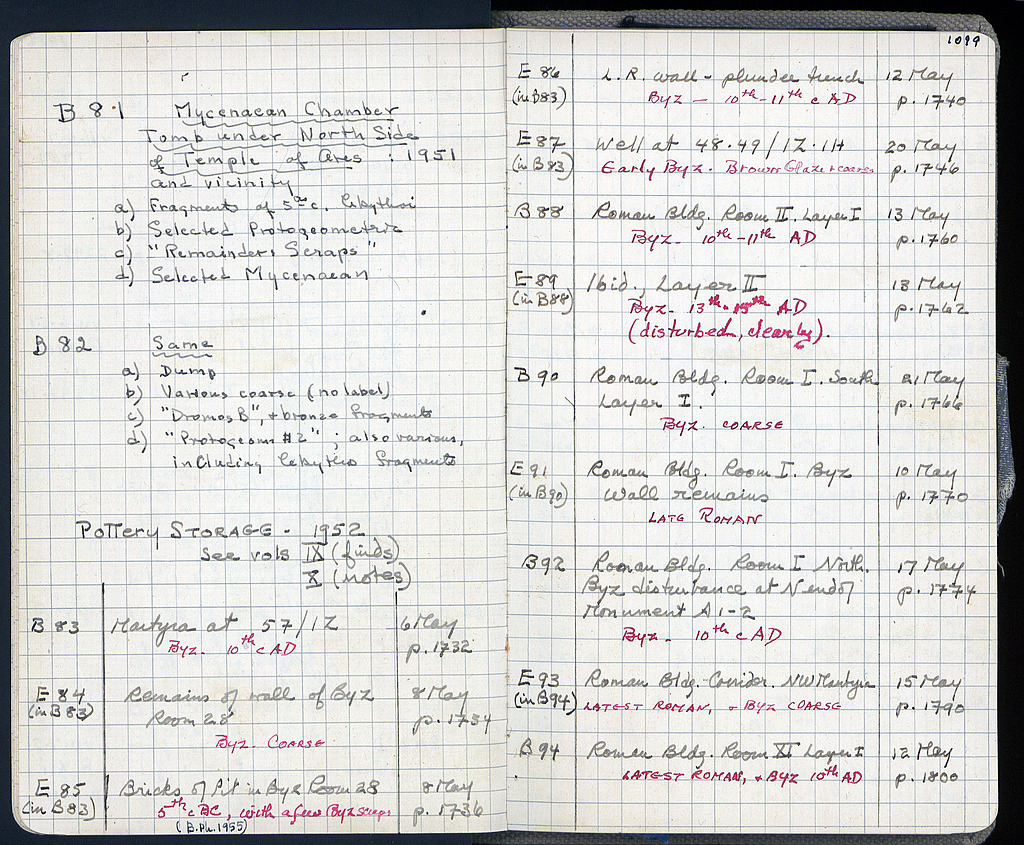 B 81 Mycenaean Chamber
Tomb under North Side
of Temple of Ares : 1951
and vicinity
a) Fragments of 5th c. lekythoi
b) Selected Protogeometric
c) "Remainders Scraps"
d) Selected Mycenaean
B 82 Same
a) Dump
b) Various coarse (no label)
c) "Dromos B", + bronze fragments
d) "Protogeom #2"; also various,
including lekytho fragments
Pottery STORAGE - 1952
See vols IX (finds)
X (notes)
B 83 Martyra at 57/IZ 6 May
Byz. 10th c AD p. 1732
E 84 Remains of wall of Byz 8 May
(in B 83) Room 28 p. 1734
Byz. COARSE
E 85 Bricks of Pit in Byz Room 28 8 May
(in B 83) 5th c BC, with a few Byz scraps p. 1736
(B.Ph. 1955)
1099
E 86 L.R. wall - plunder trench 12 May
(in B83) Byz - 10th-11th c AD p. 1740
E 87 Well at 48-49/IZ-IH 20 May
(in B 83) Early Byz. Brown Glaze + coarse p. 1746
B 88 Roman Bldg. Room II. Layer I 13 May
Byz - 10th-11th AD p. 1760
E 89 Ibid., Layer II 13 May
(in B88) Byz - 13th- AD p. 1762
(disturbed, clearly).
B 90 Roman Bldg. Room I. South 21 May
Layer I. p. 1766
Byz. COARSE
E 91 Roman Bldg. Room I. Byz 10 May
(in B90) Wall remains p. 1770
LATE ROMAN
B92 Roman Bldg. Room I North. 17 May
Byz disturbance at N end of p. 1774
Monument A 1-2
Byz - 10th c AD
E 93 Roman Bldg-Corridor. NW Martyra 15 May
(in B94) LATEST ROMAN, + BYZ COARSE p. 1790
B 94 Roman Bldg. Room XI Layer I 12 May
LATEST ROMAN, + BYZ 10th AD p. 1800